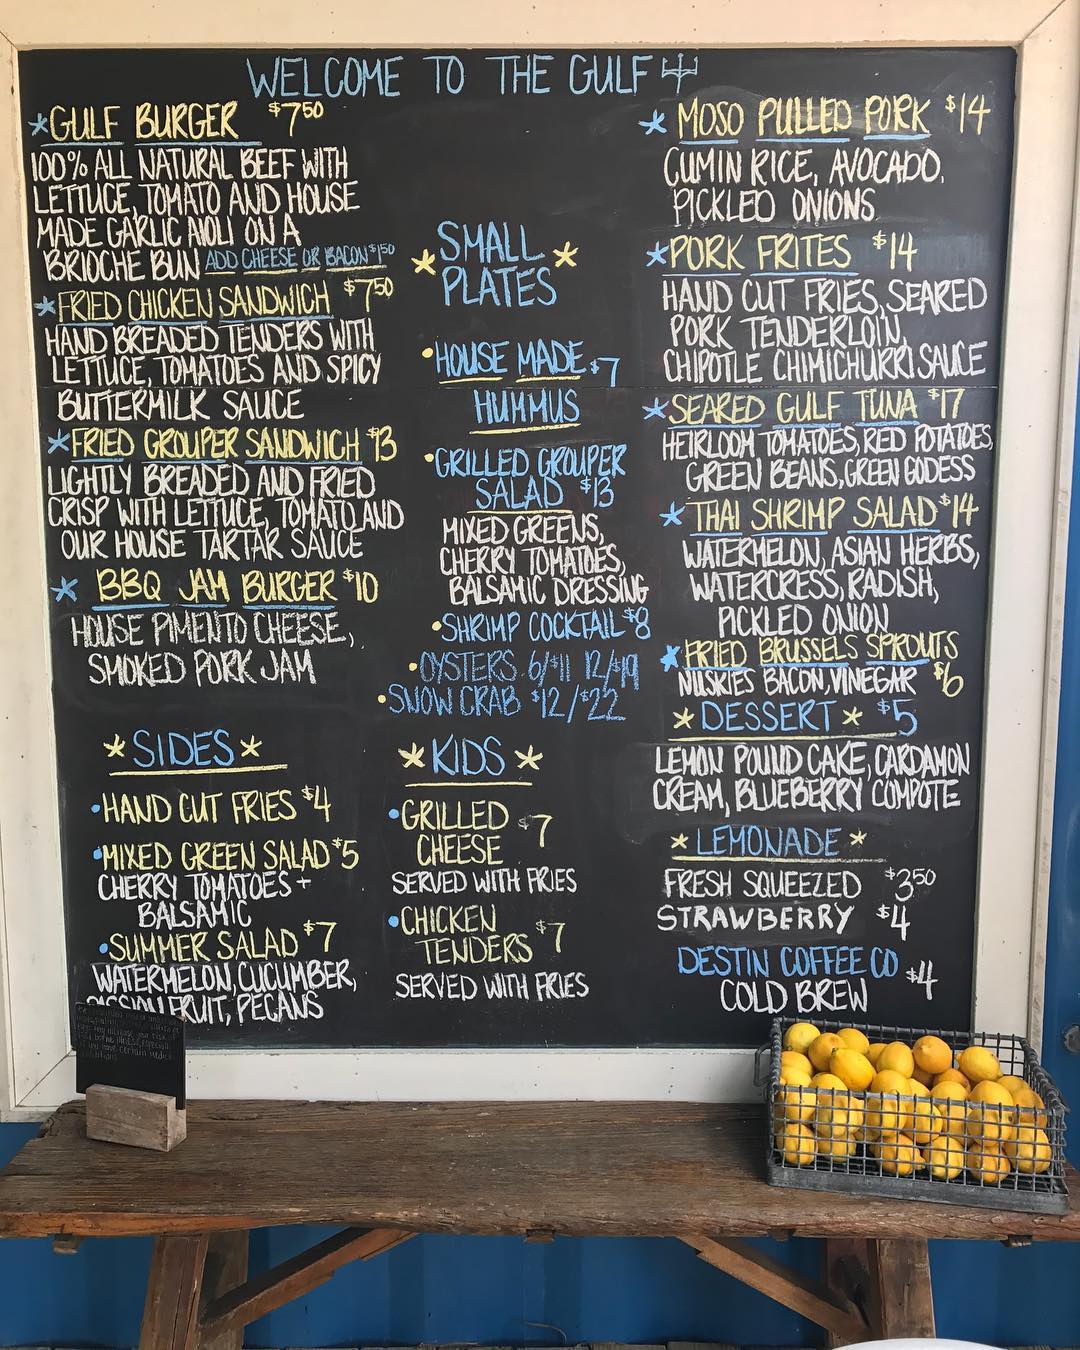 WELCOME TO THE GULF
*GULF BURGER $7.50
100% ALL NATURAL BEEF WITH
LETTUCE, TOMATO AND HOUSE
MADE GARLIC AIOLI ON A
BRIOCHE BUN ADD CHEESE OR BACON $1.50
*FRIED CHICKEN SANDWICH $7.50
HAND BREADED TENDERS WITH
LETTUCE, TOMATOES AND SPICY
BUTTERMILK SAUCE
*FRIED GROUPER SANDWICH $13
LIGHTLY BREADED AND FRIED
CRISP WITH LETTUCE, TOMATO AND
OUR HOUSE TARTAR SAUCE
* BBQ JAM BURGER $10
HOUSE PIMENTO CHEESE,
SMOKED PORK JAM
*SIDES*
•HAND CUT FRIES $4
•MIXED GREEN SALAD $5
CHERRY TOMATOES +
BALSAMIC
•SUMMER SALAD $7
WATERMELON, CUCUMBER,
PASSION FRUIT, PECANS
* SMALL
PLATES *
•HOUSE MADE $7
HUMMUS
•GRILLED GROUPER
SALAD $13
MIXED GREENS,
CHERRY TOMATOES,
BALSAMIC DRESSING
•SHRIMP COCKTAIL $8
•OYSTERS 6/$11 12/$19
•SNOW CRAB $12/$22
*KIDS*
•GRILLED
CHEESE $7
SERVED WITH FRIES
•CHICKEN
TENDERS $7
SERVED WITH FRIES
* MOSO PULLED PORK $14
CUMIN RICE, AVOCADO,
PICKLED ONIONS
*PORK FRITES $14
HAND CUT FRIES, SEARED
PORK TENDERLOIN,
CHIPOTLE CHIMICHURRI SAUCE
*SEARED GULF TUNA $17
HEIRLOOM TOMATOES, RED POTATOES,
GREEN BEANS, GREEN GODESS
* THAI SHRIMP SALAD $14
WATERMELON, ASIAN HERBS,
WATERCRESS, RADISH,
PICKLED ONION
*FRIED BRUSSELS SPROUTS
NUSKIES BACON, VINEGAR $6
* DESSERT * $5
LEMON POUND CAKE, CARDAMON
CREAM, BLUEBERRY COMPOTE
* LEMONADE *
FRESH SQUEEZED $3.50
STRAWBERRY $4
DESTIN COFFEE CO $4
COLD BREW